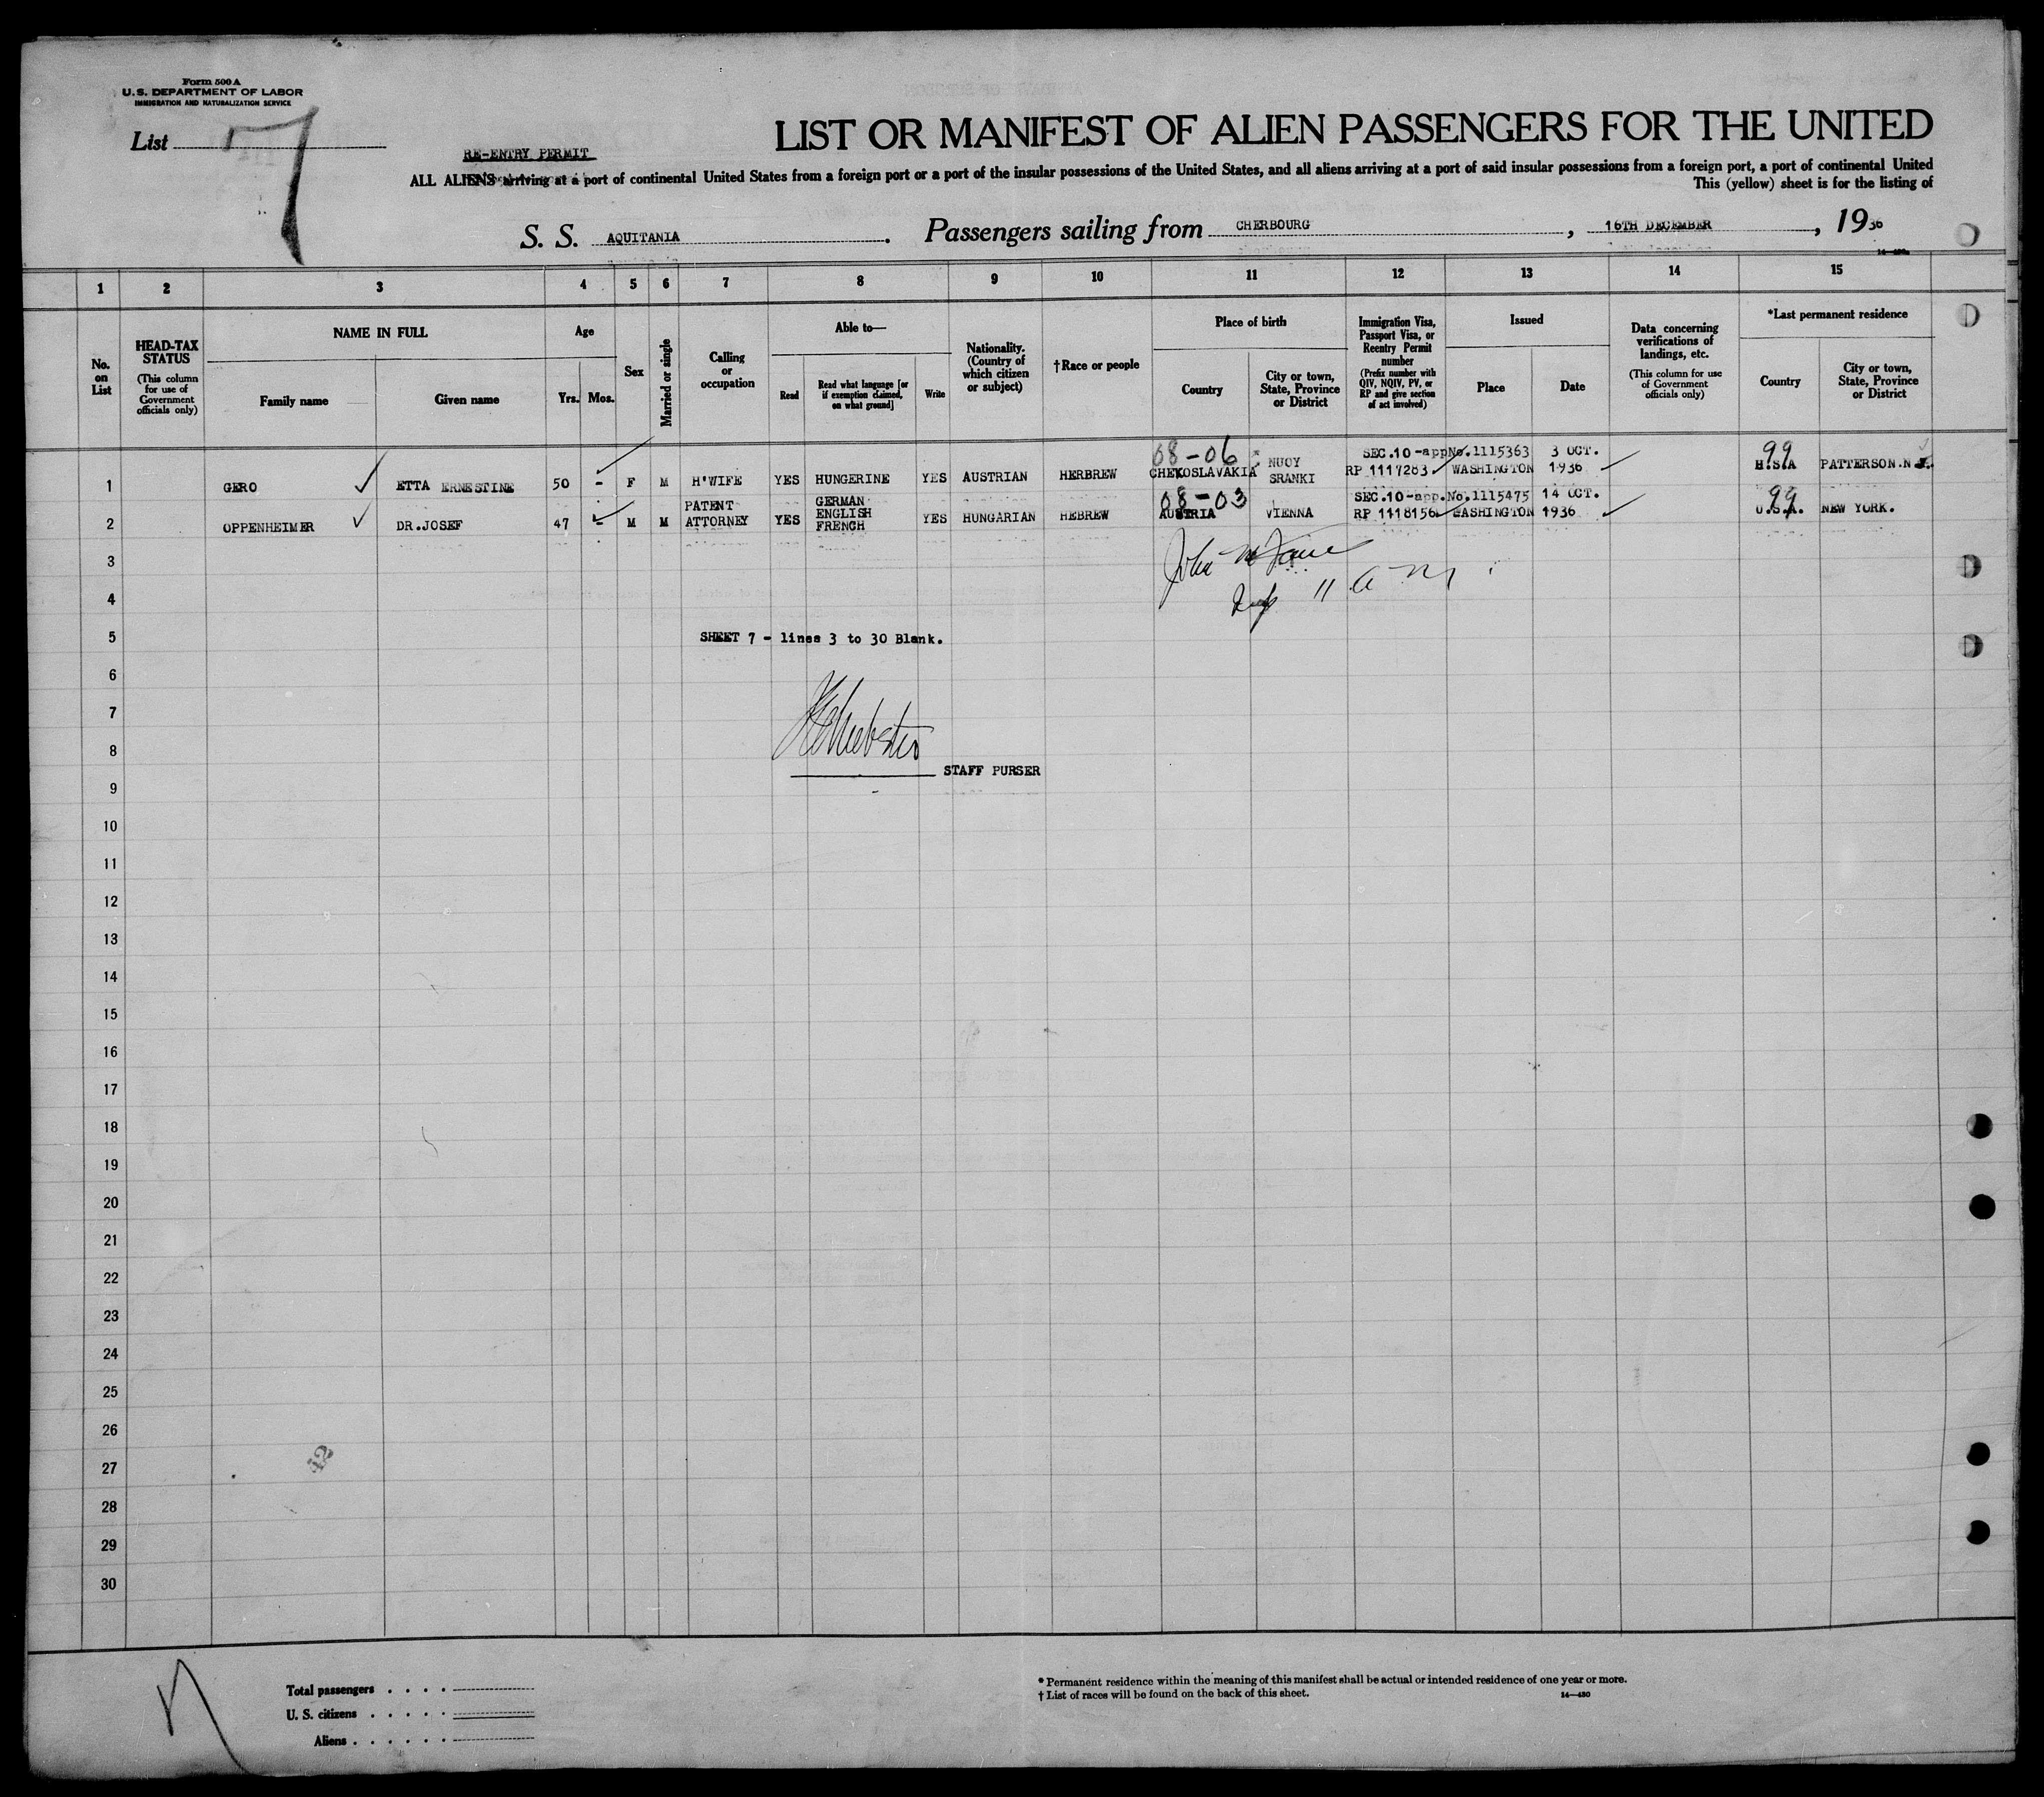 Form 500 A
U. S. DEPARTMENT OF LABOR
IMMIGRATION AND NATURALIZATION SERVICE
List 7
LIST OR MANIFEST OF ALIEN PASSENGERS FOR THE UNITED
RE-ENTRY PERMIT
ALL ALIENS arriving at a port of continental United States from a foreign port or a port of the insular possessions of the United States, and all aliens arriving at a port of said insular possessions from a foreign port, a port of continental United
This (yellow) sheet is for the listing of
S. S. AQUITANIA. Passengers sailing from CHERBOURG, 16TH DECEMBER, 1936
1 2 3 4 5 6 7 8 9 10 11 12 13 14 15
No. on List
HEAD-TAX STATUS
(This column for use of Government officials only)
NAME IN FULL
Family name
Given name
Age
Yrs. Mos.
Sex
Married or single
Calling or occupation
Able to—
Read
Read what language [or if exemption claimed, on what ground]
Write
Nationality. (Country of which citizen or subject)
†Race or people
Place of birth
Country
City or town, State, Province or District
Immigration Visa, Passport Visa, or Reentry Permit number
(Prefix number with QIV, NQIV, PV, or RP and give section of act involved)
Issued
Place
Date
Data concerning verifications of landings, etc.
(This column for use of Government officials only)
*Last permanent residence
Country
City or town, State, Province or District
08-06 SEC.10-appNo.1115363 3 OCT. 99
1 GERO ETTA ERNESTINE 50 - F M H'WIFE YES HUNGERINE YES AUSTRIAN HERBREW CHEKOSLAVAKIA NUOY SRANKI RP 1117283 WASHINGTON 1936 PATTERSON.N J.
08-03 SEC.10-app.No.1115475 14 OCT. 99
2 OPPENHEIMER DR.JOSEF 47 - M M PATENT ATTORNEY YES GERMAN ENGLISH FRENCH YES HUNGARIAN HEBREW AUSTRIA VIENNA RP 1118156 WASHINGTON 1936 U.S.A. NEW YORK.
3
4
11 a m
5 SHEET 7 - lines 3 to 30 Blank.
6
7
8
STAFF PURSER
9
10
11
12
13
14
15
16
17
18
19
20
21
22
23
24
25
26
27
28
29
30
Total passengers
U. S. citizens
Aliens
* Permanent residence within the meaning of this manifest shall be actual or intended residence of one year or more.
† List of races will be found on the back of this sheet.
14—480